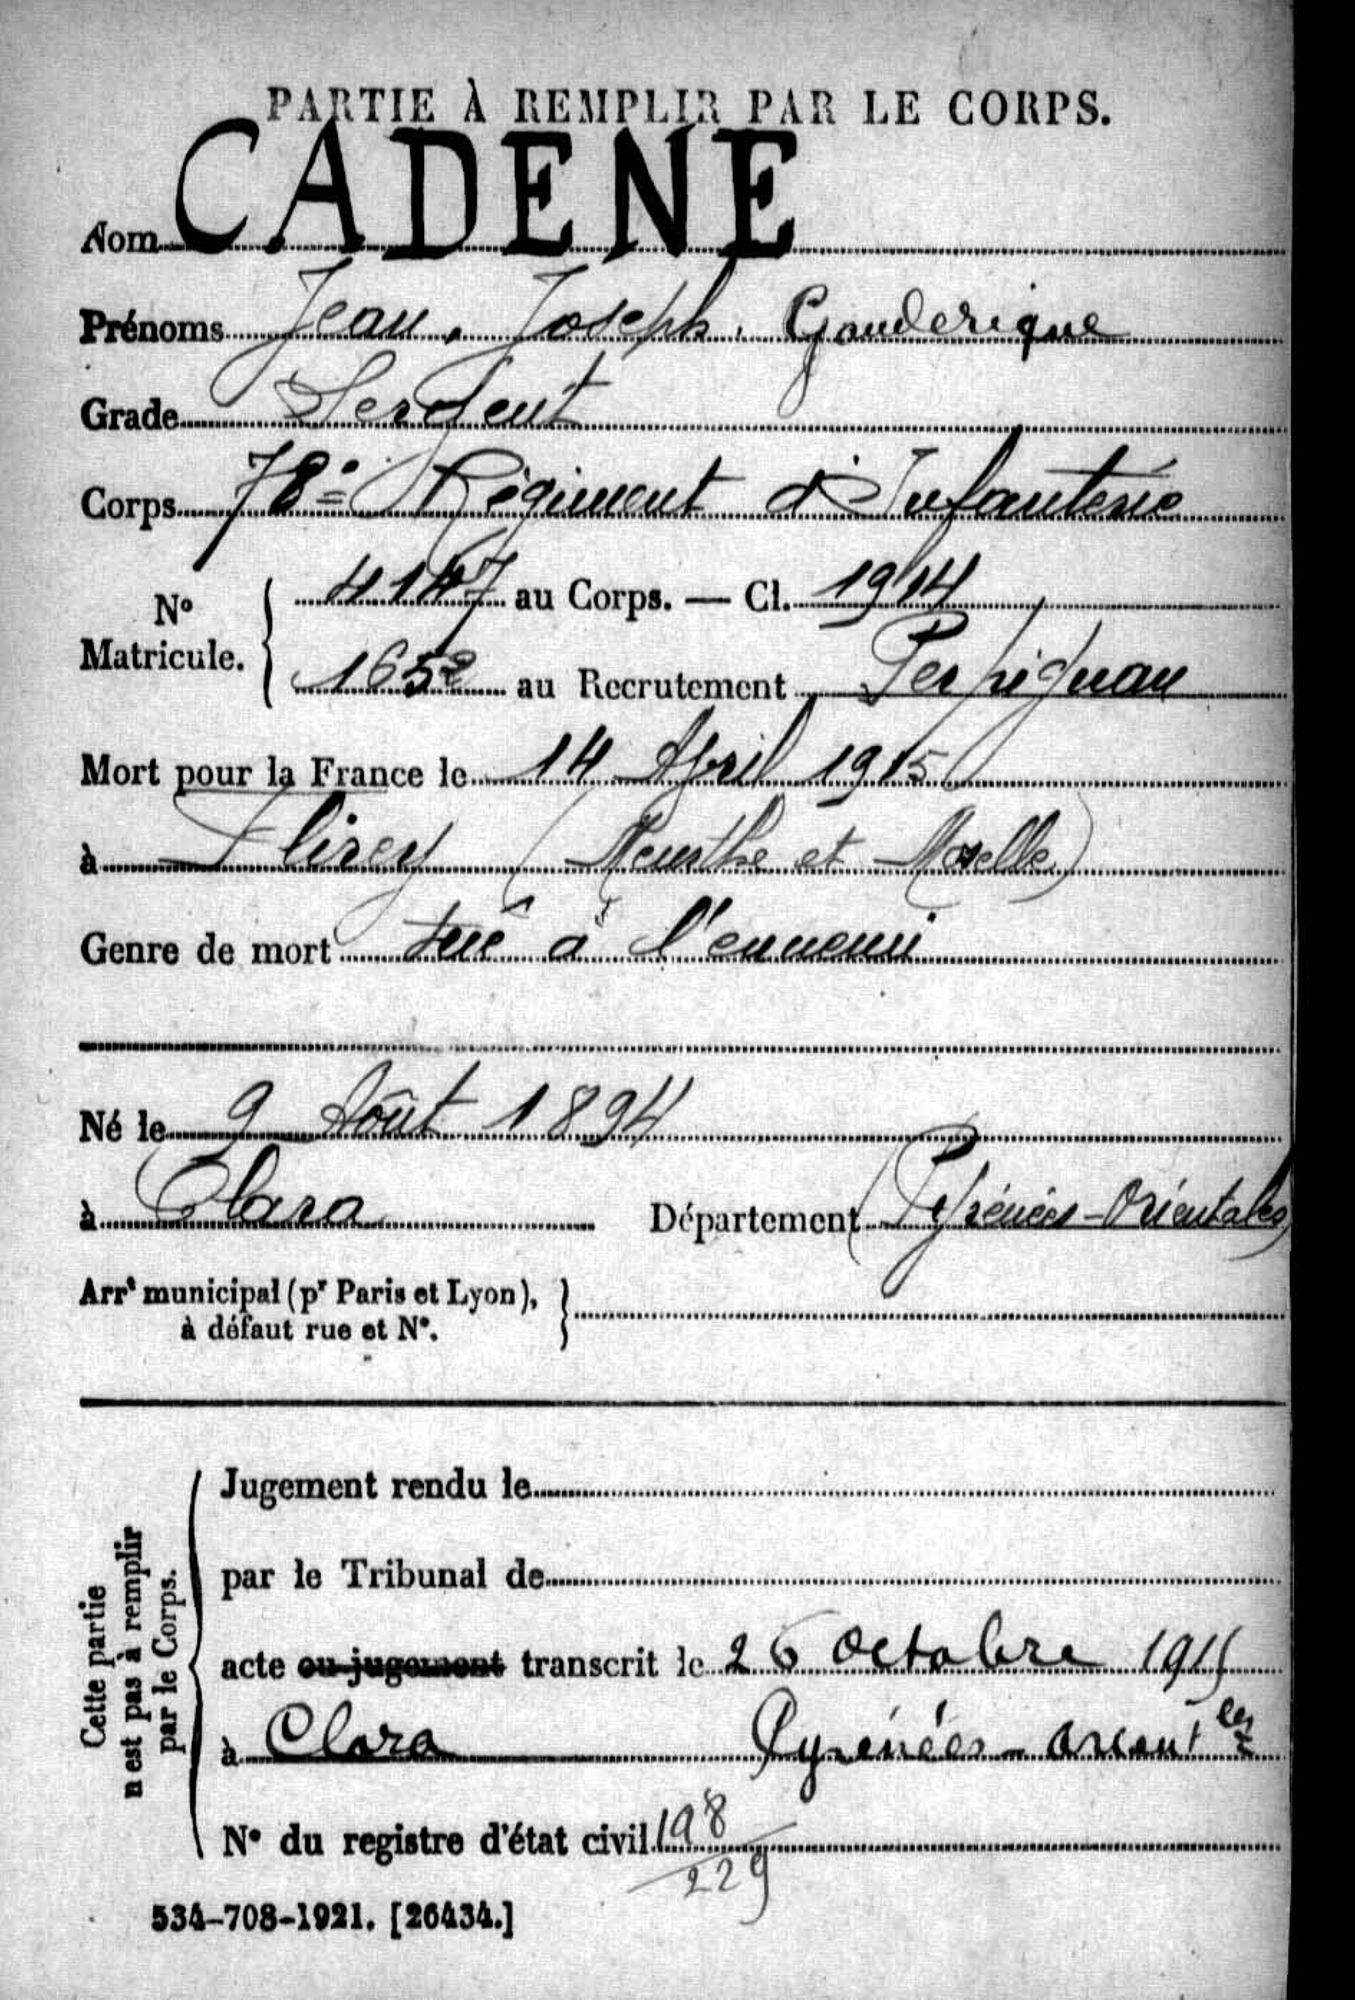 PARTIE À REMPLIR PAR LE CORPS.
Nom CADENE
Prénoms Jean, Joseph, Gauderique
Grade Sergent
Corps 78e Régiment d'Infanterie
N° Matricule. 4147 au Corps. — Cl. 1914
1652 au Recrutement Perpignan
Mort pour la France le 14 Avril 1915
à Flirey (Meurthe et Moselle)
Genre de mort tué à l'ennemi
Né le 9 Août 1894
à Clara Département (Pyrénées-Orientales)
Arrt municipal (pr Paris et Lyon),
à défaut rue et N°.
Cette partie
n'est pas à remplir
par le Corps.
Jugement rendu le
par le Tribunal de
acte ou jugement transcrit le 26 Octobre 1915
à Clara Pyrénées-Orientles
N° du registre d'état civil 198
229
534-708-1921. [26434.]